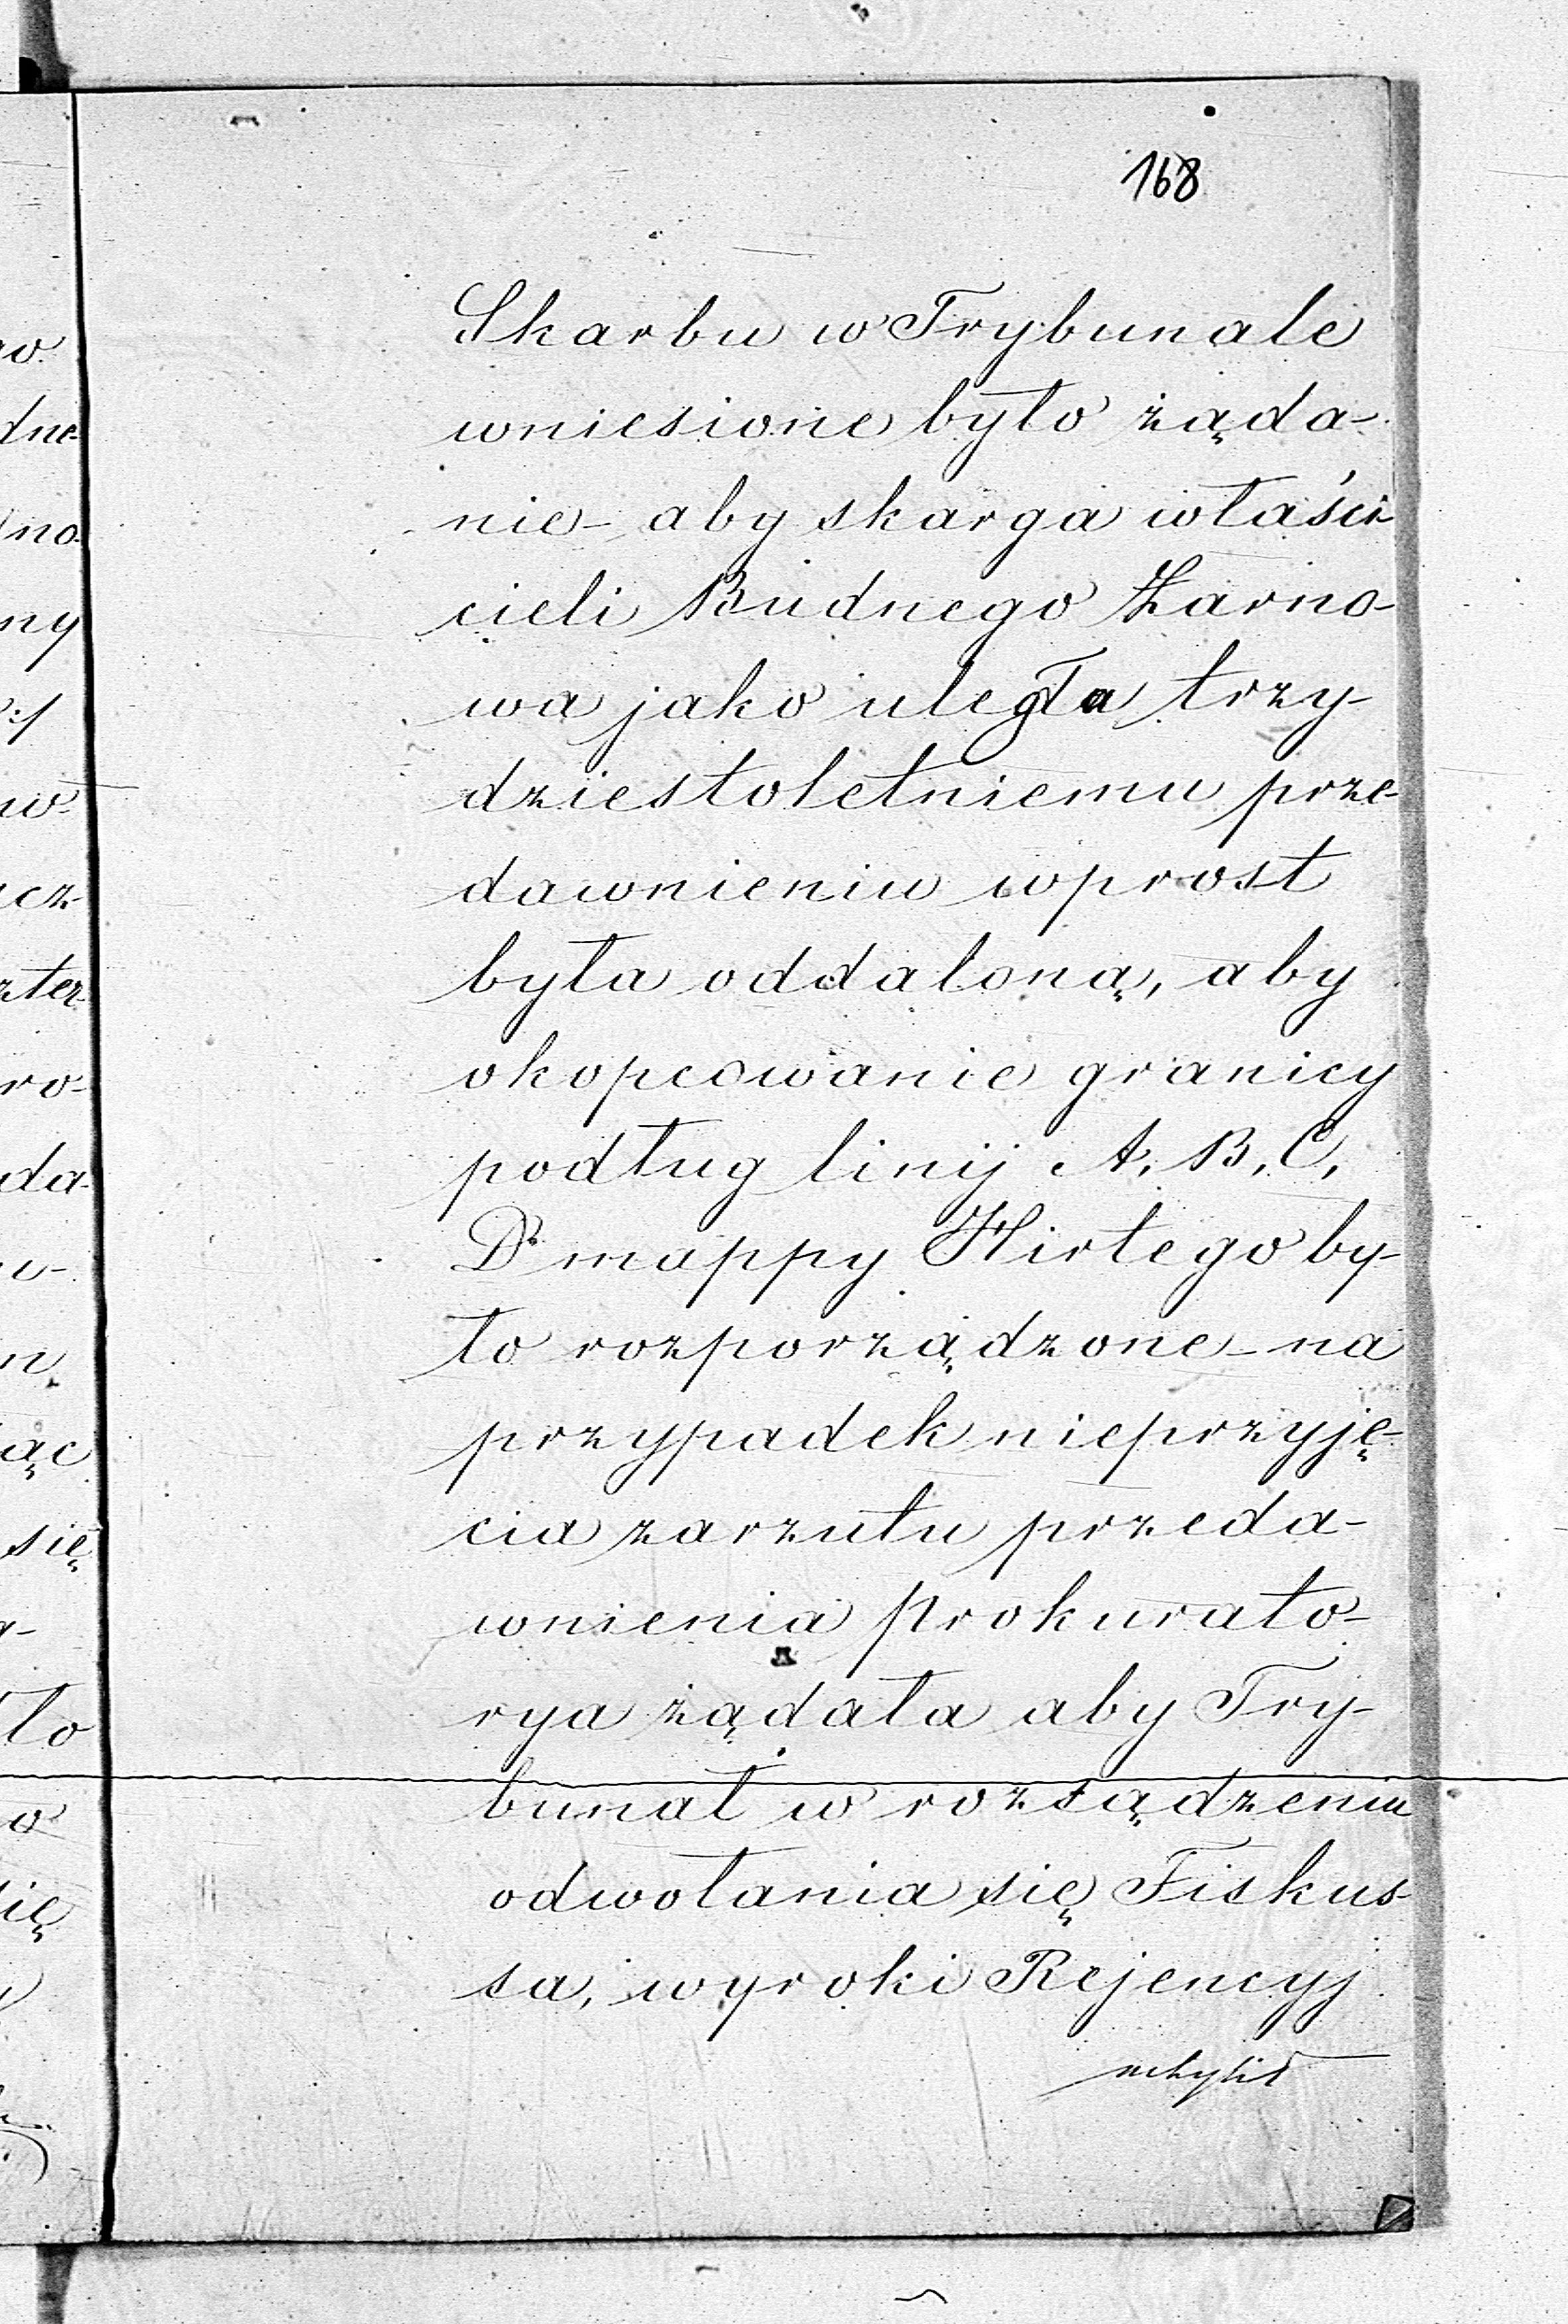 168
Skarbu w Trybunale
wniesione było żąda-
nie - aby skarga właści-
cieli Budnego Żarno-
wa jako uległa trzy-
dziestoletniemu prze-
dawnieniu wprost
była oddaloną, aby
okopcowanie granicy
podług linij A. B. C.
D. mappy Hirtego by-
ło rozporządzone - na
przypadek nieprzyję-
cia zarzutu przeda-
wnienia prokurato-
rya żądała aby Try-
bunał w rozsądzeniu
odwołania się Fiskus-
sa, wyroki Rejencyj
uchylił